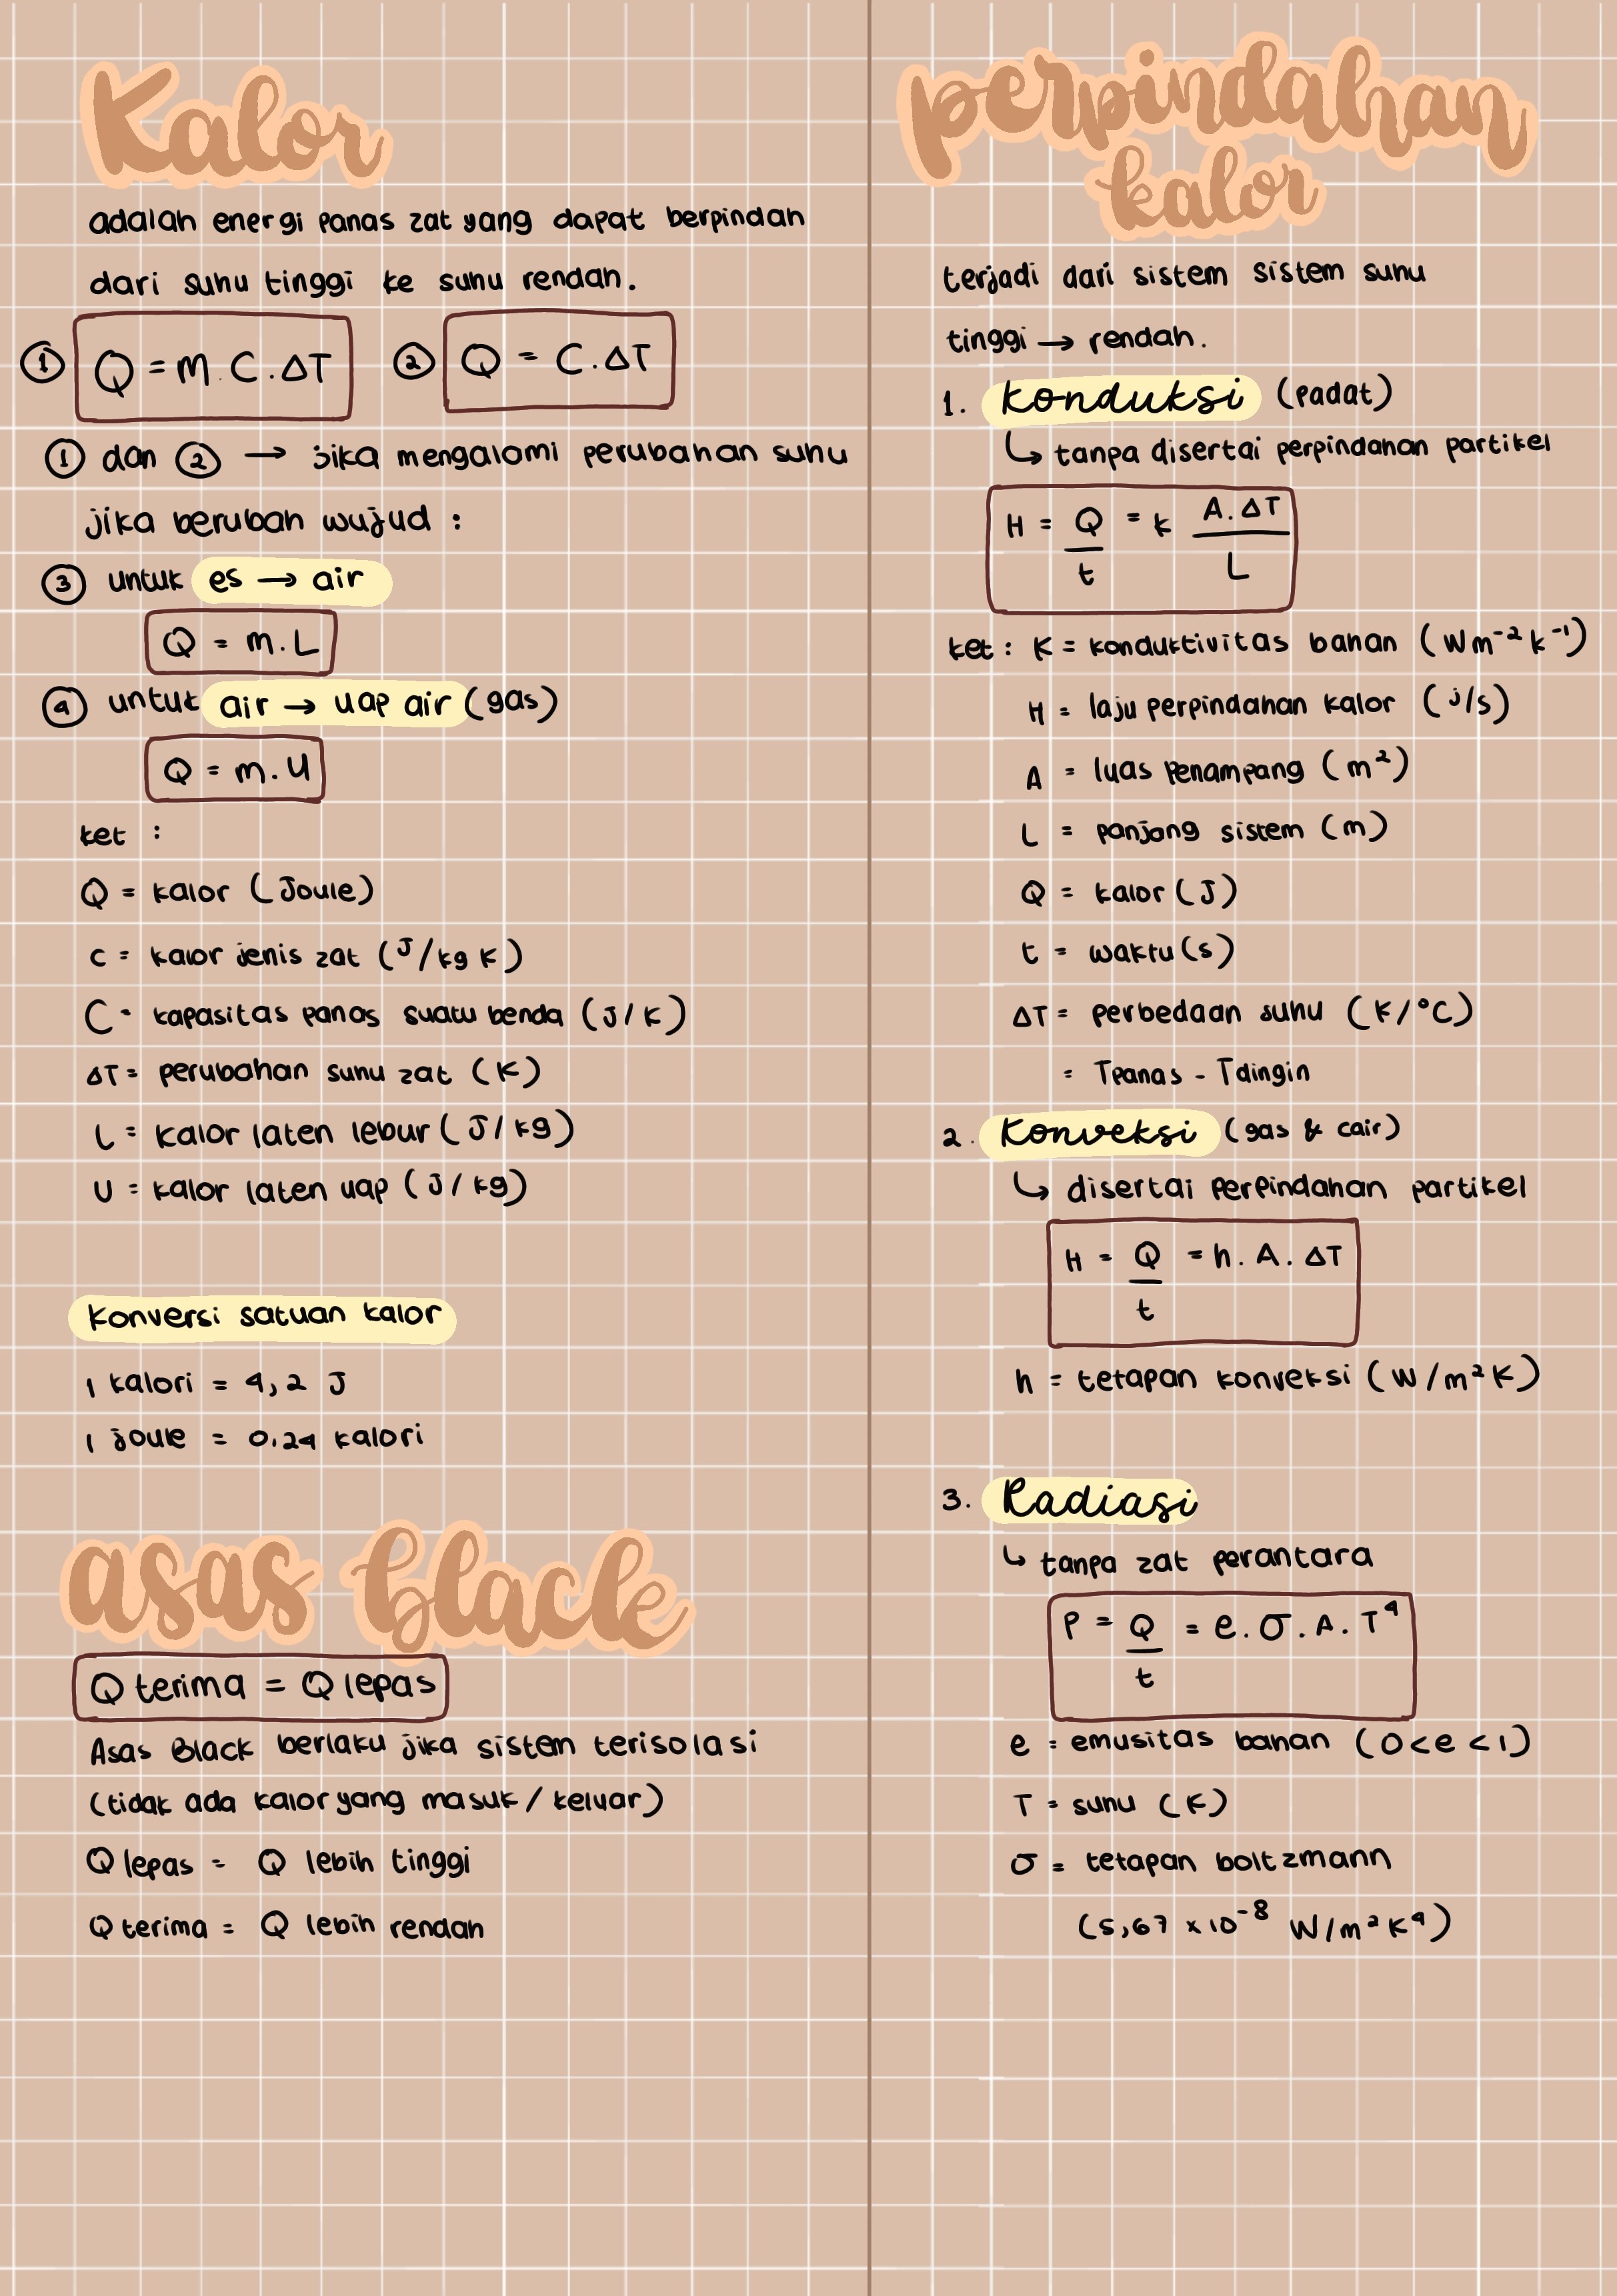 Kalor
adalah energi panas zat yang dapat berpindah
dari suhu tinggi ke suhu rendah.
① Q = m . C . ΔT ② Q = C . ΔT
① dan ② → jika mengalami perubahan suhu
jika berubah wujud :
③ untuk es → air
Q = m . L
④ untuk air → uap air (gas)
Q = m . U
ket :
Q = kalor (Joule)
c = kalor jenis zat (J/kg K)
C = kapasitas panas suatu benda (J/K)
ΔT = perubahan suhu zat (K)
L = kalor laten lebur (J/kg)
U = kalor laten uap (J/kg)
Konversi satuan kalor
1 kalori = 4,2 J
1 joule = 0.24 kalori
asas black
Q terima = Q lepas
Asas Black berlaku jika sistem terisolasi
(tidak ada kalor yang masuk / keluar)
Q lepas = Q lebih tinggi
Q terima = Q lebih rendah
perpindahan
kalor
terjadi dari sistem sistem suhu
tinggi → rendah.
1. Konduksi (padat)
↳ tanpa disertai perpindahan partikel
H = Q = k A . ΔT
t L
ket : K = konduktivitas bahan (Wm⁻²k⁻¹)
H = laju perpindahan kalor (j/s)
A = luas penampang (m²)
L = panjang sistem (m)
Q = kalor (J)
t = waktu (s)
ΔT = perbedaan suhu (K/°C)
= Tpanas - Tdingin
2. Konveksi (gas & cair)
↳ disertai perpindahan partikel
H = Q = h . A . ΔT
t
h = tetapan konveksi (W/m²K)
3. Radiasi
↳ tanpa zat perantara
P = Q = e . σ . A . T⁴
t
e = emusitas bahan (0<e<1)
T = suhu (K)
σ = tetapan boltzmann
(5,67 x 10⁻⁸ W/m²K⁴)